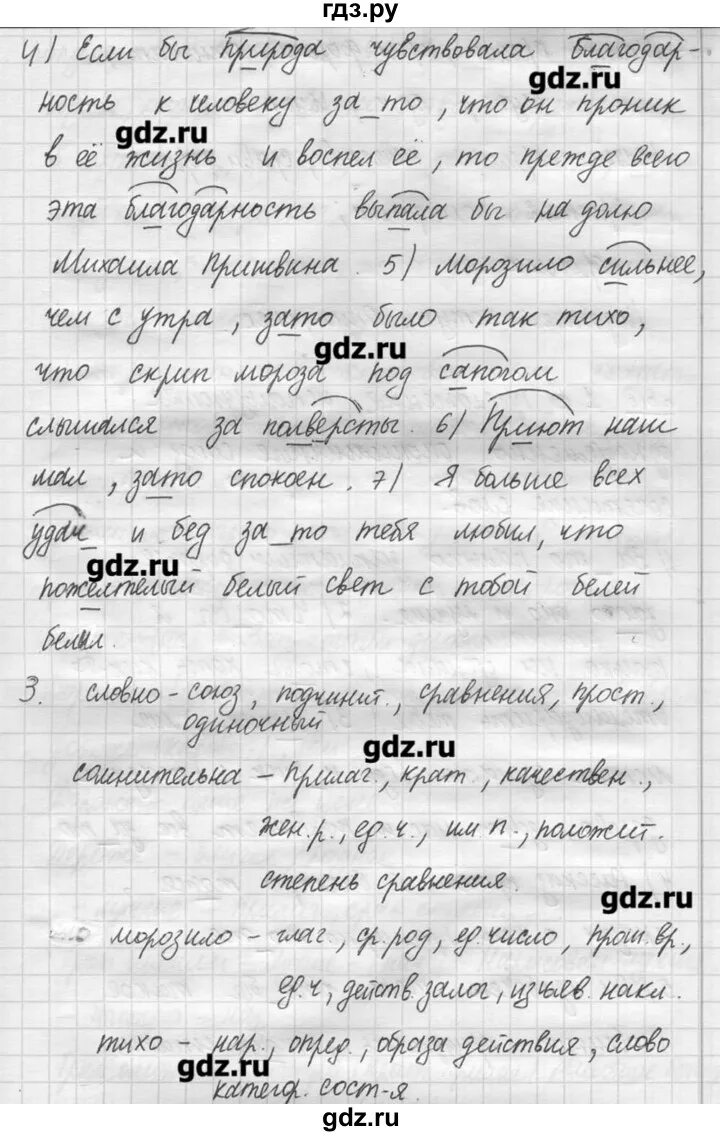 гдз.ру
4) Если бы природа чувствовала благодар-
gdz.ru
ность к человеку за_то, что он проник
gdz.ru
в её жизнь и воспел её, то прежде всего
эта благодарность выпала бы на долю
Михаила Пришвина. 5) Морозило сильнее,
чем с утра, зато было так тихо,
gdz.ru
что скрип мороза под сапогом
слышался за полверсты. 6) Приют наш
мал, зато спокоен. 7) Я больше всех
удач и бед за_то тебя любил, что
gdz.ru
пожелтелый белый свет с тобой белей
белил.
3. словно - союз, подчинит., сравнения, прост.,
одиночный
gdz.ru
сомнительна - прилаг., крат., качествен.,
жен.р., ед.ч., им п., положит.
степень сравнения.
gdz.ru
морозило - глаг., ср.род, ед.число, прош.вр.,
ед.ч, действ.залог, изъяв.накл.
тихо - нар., опред., образа действия, слово
gdz.ru
категор. сост-я.
gdz.ru